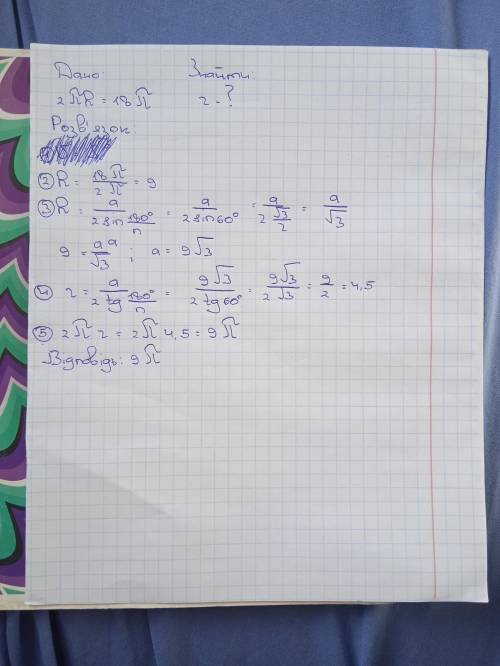 Дано: Знайти:
2πR = 18π r - ?
Розв'язок:
② R = 18π / 2π = 9
③ R = a / (2 sin 180°/n) = a / (2 sin 60°) = a / (2 √3/2) = a / √3
9 = a / √3 ; a = 9√3
④ r = a / (2 tg 180°/n) = 9√3 / (2 tg 60°) = 9√3 / (2√3) = 9/2 = 4,5
⑤ 2π r = 2π 4,5 = 9π
Відповідь: 9π